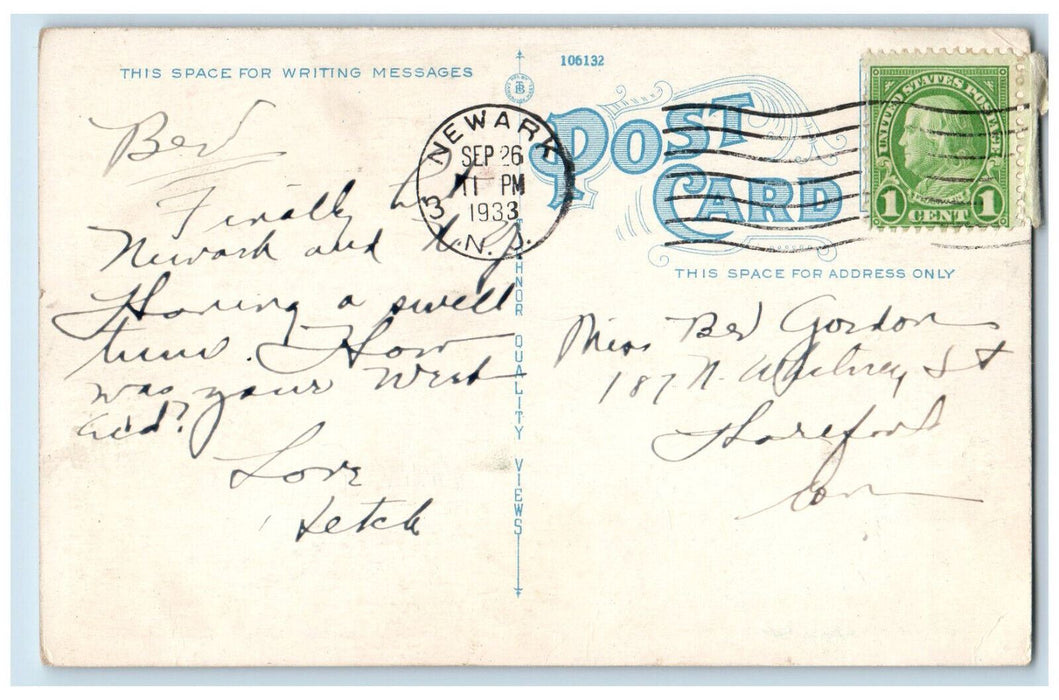 THIS SPACE FOR WRITING MESSAGES
106132
POST
CARD
THIS SPACE FOR ADDRESS ONLY
UNITED STATES POSTAGE
1 CENT 1
NEWARK
SEP 26
11 PM
1933
3 N.J.
Bev
Finally
Newark and N.Y.
Having a swell
time. How
was your week
end?
Love
Letch
Miss Bev Gordon
187 N. Whitney St
Hartford
Conn
QUALITY VIEWS